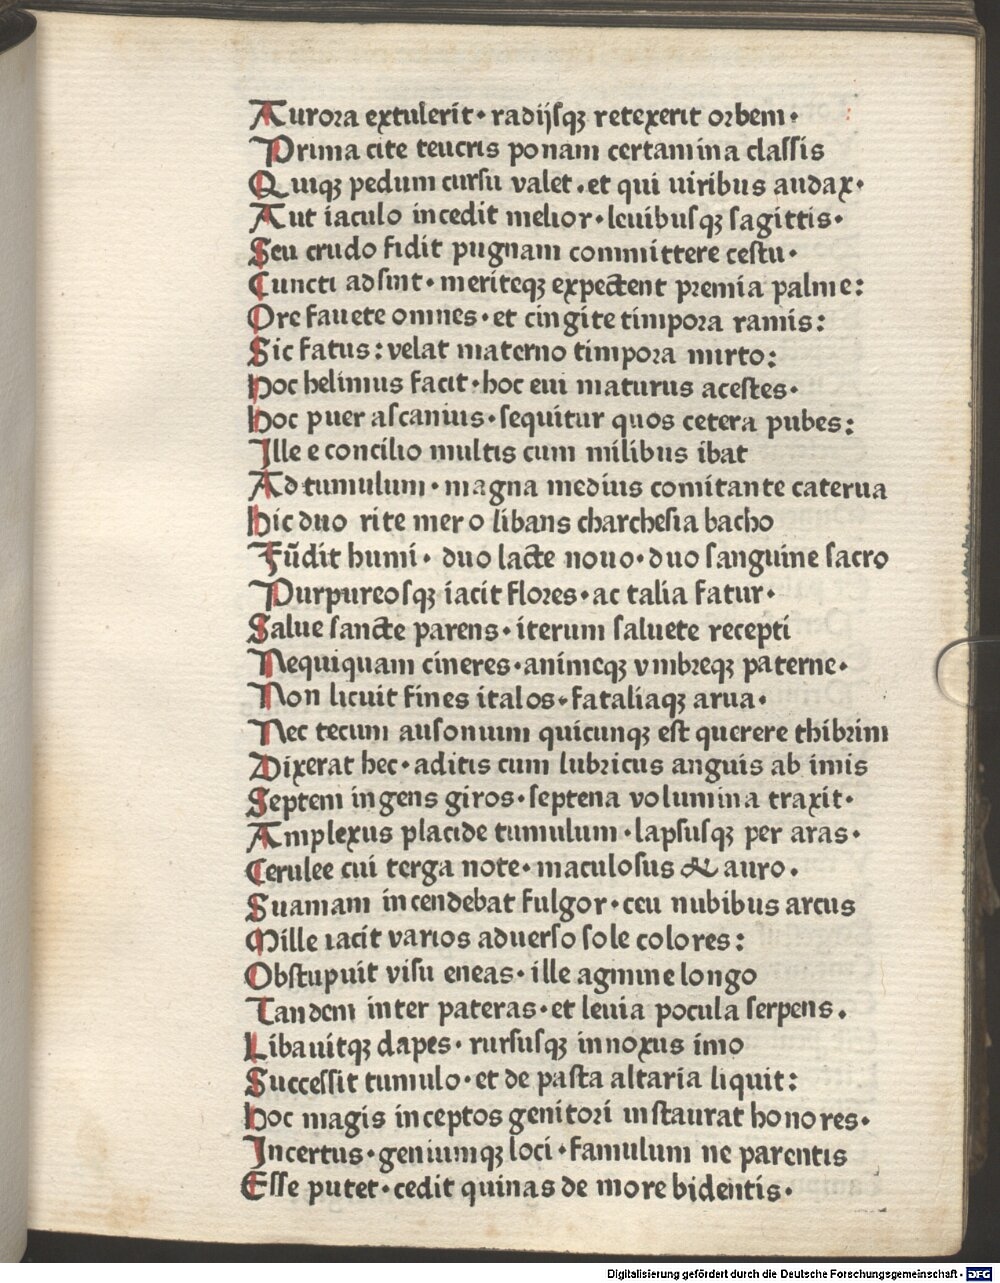 Aurora extulerit· radijsqꝫ retexerit orbem·
Prima cite teucris ponam certamina classis
Quiqꝫ pedum cursu valet·et qui uiribus audax·
Aut iaculo incedit melior·leuibusqꝫ sagittis·
Seu crudo fidit pugnam committere cestu·
Cuncti adsint·meriteqꝫ expectent premia palme:
Ore fauete omnes·et cingite timpora ramis:
Sic fatus:velat materno timpora mirto:
Hoc helimus facit·hoc eui maturus acestes·
Hoc puer ascanius·sequitur quos cetera pubes:
Ille e concilio multis cum milibus ibat
Ad tumulum·magna medius comitante caterua
Hic duo rite mero libans charchesia bacho
Fūdit humi· duo lacte nouo·duo sanguine sacro
Purpureosqꝫ iacit flores·ac talia fatur·
Salue sancte parens·iterum saluete recepti
Nequiquam cineres·animeqꝫ vmbreqꝫ paterne·
Non licuit fines italos·fataliaqꝫ arua·
Nec tecum ausonium quicunqꝫ est querere thibrim
Dixerat hec·aditis cum lubricus anguis ab imis
Septem ingens giros·septena volumina traxit·
Amplexus placide tumulum·lapsusqꝫ per aras·
Cerulee cui terga note·maculosus & auro.
Suamam incendebat fulgor·ceu nubibus arcus
Mille iacit varios aduerso sole colores:
Obstupuit visu eneas·ille agmine longo
Tandem inter pateras·et leuia pocula serpens.
Libauitqꝫ dapes·rursusqꝫ innoxus imo
Successit tumulo·et de pasta altaria liquit:
Hoc magis inceptos genitori instaurat honores·
Incertus·geniumqꝫ loci·famulum ne parentis
Esse putet·cedit quinas de more bidentis·
Digitalisierung gefördert durch die Deutsche Forschungsgemeinschaft - DFG